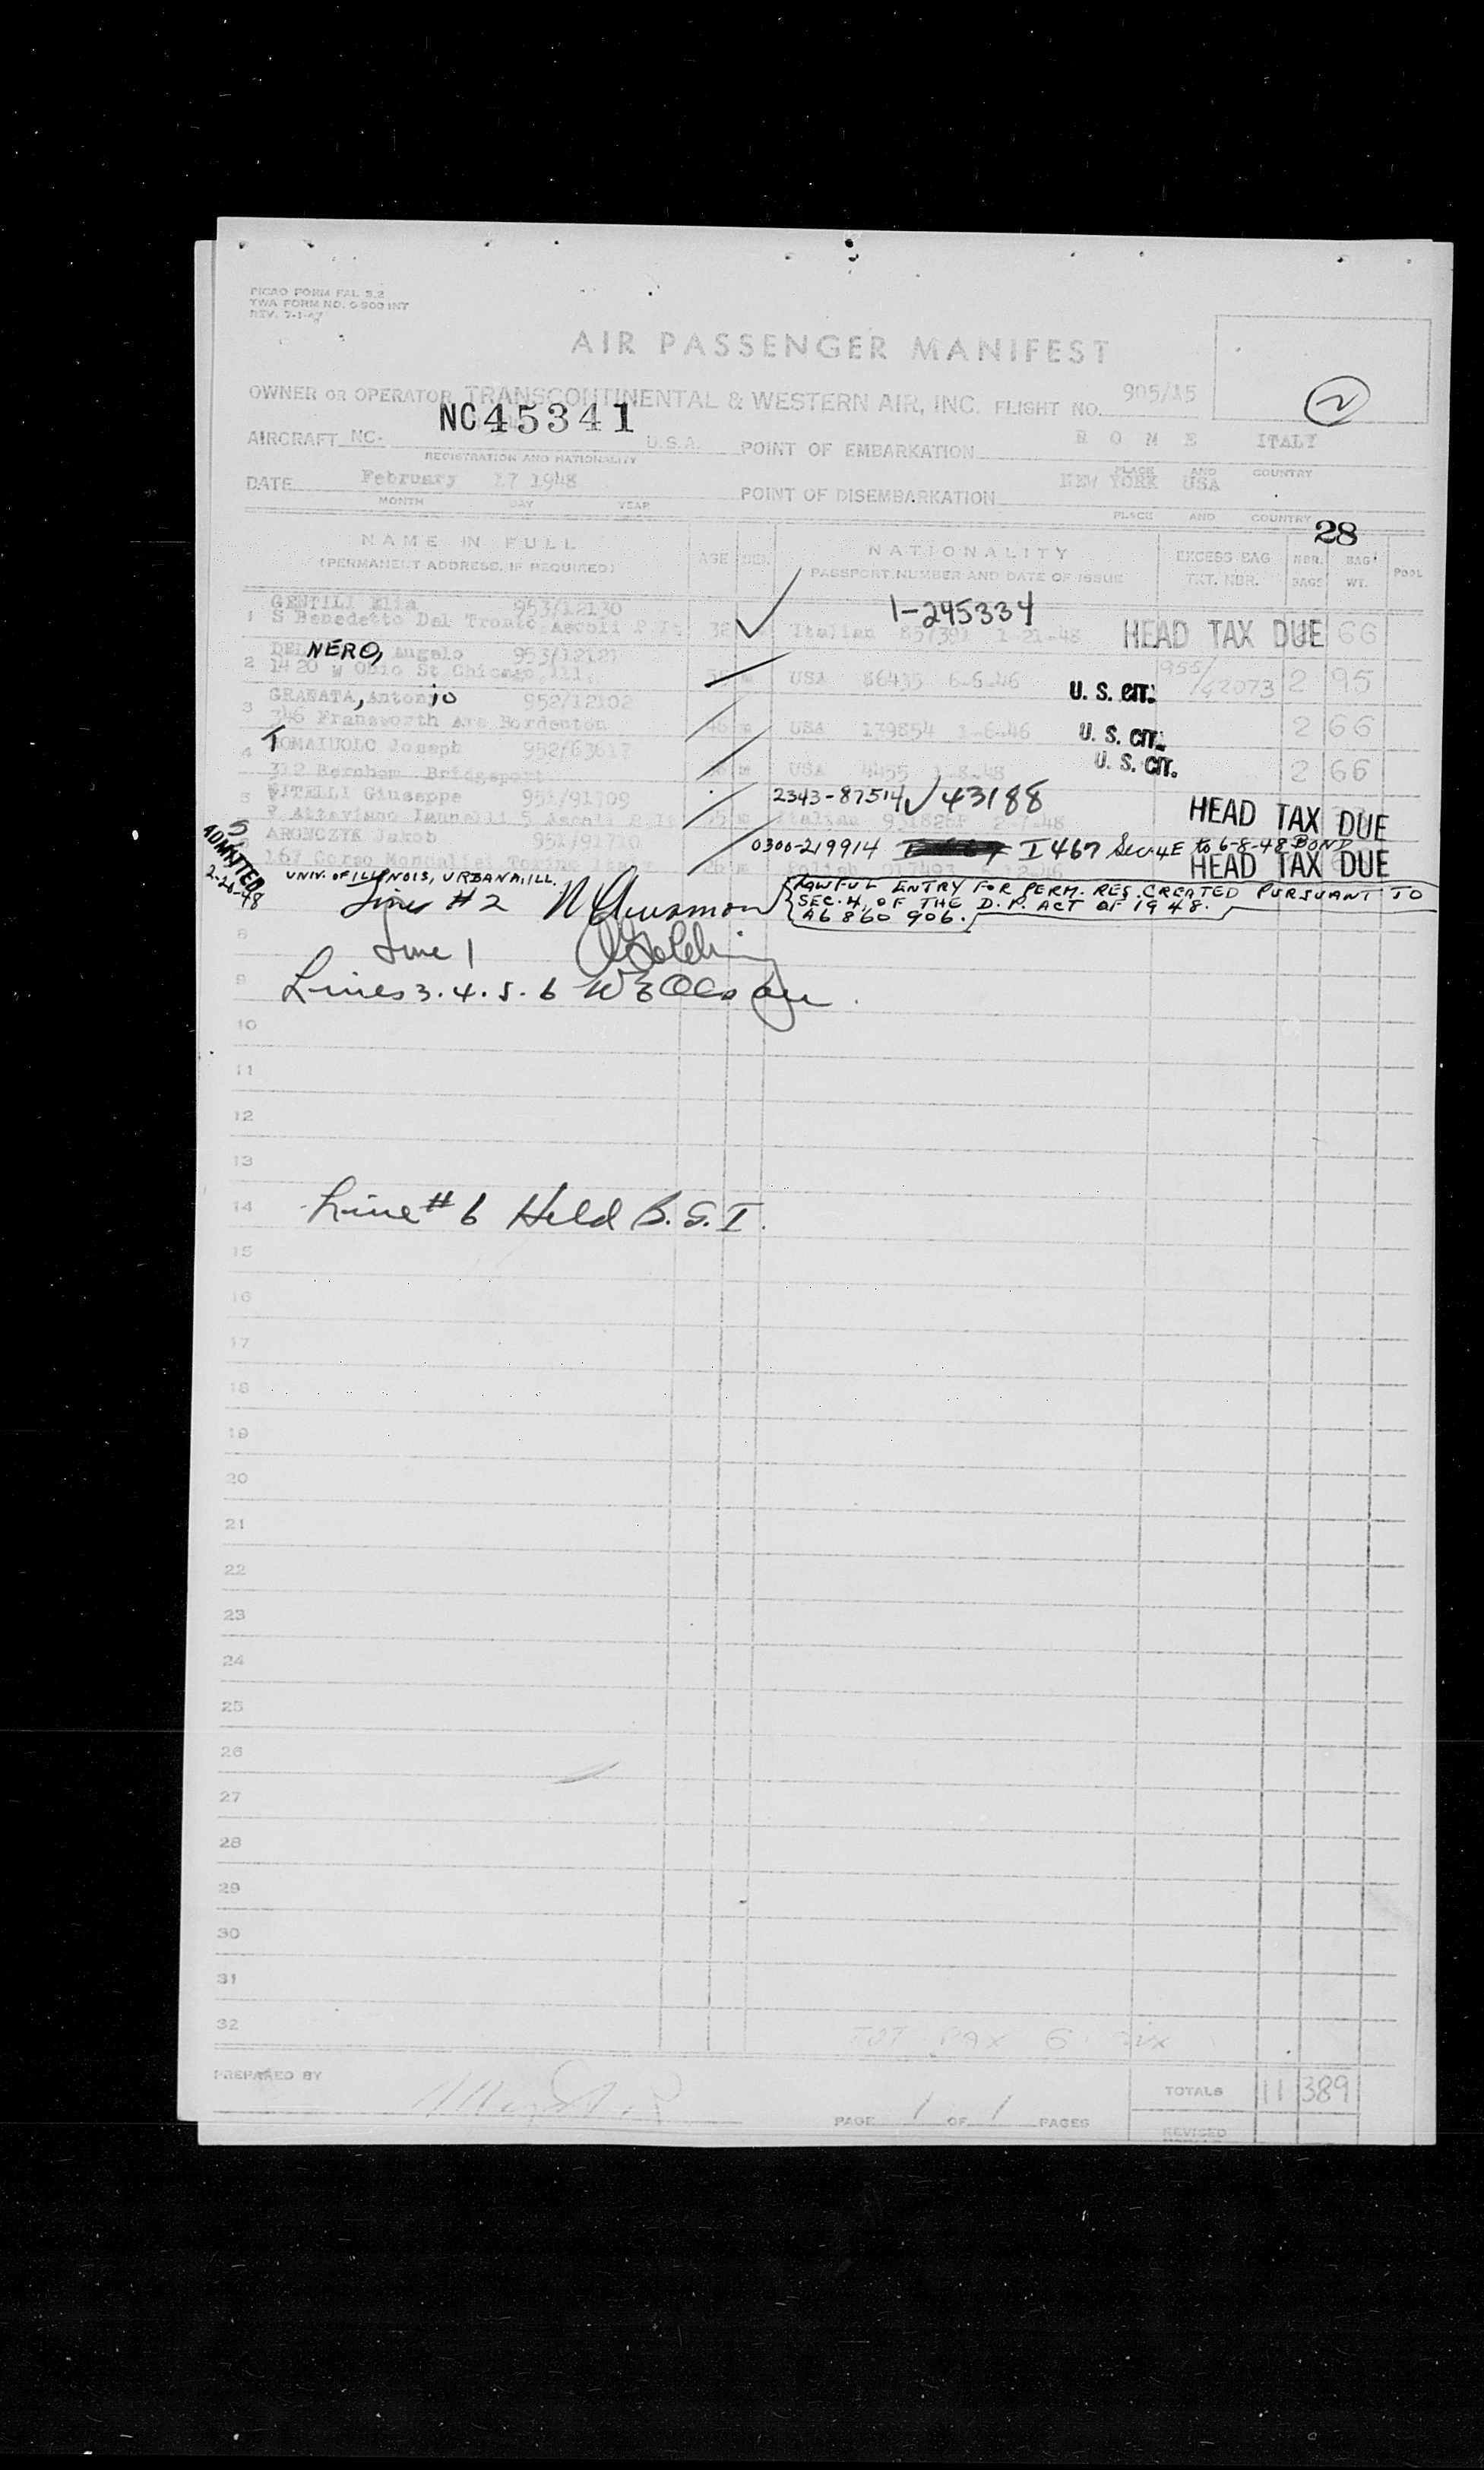 PICAO FORM FAL 3.2
TWA FORM NO. O-900 INT
REV. 7-1-47
AIR PASSENGER MANIFEST
OWNER OR OPERATOR TRANSCONTINENTAL & WESTERN AIR, INC. FLIGHT NO. 905/15
2
NC45341
AIRCRAFT NC. U.S.A. POINT OF EMBARKATION R O M E ITALY
REGISTRATION AND NATIONALITY PLACE AND COUNTRY
DATE February 17 1948 POINT OF DISEMBARKATION NEW YORK USA
MONTH DAY YEAR PLACE AND COUNTRY
28
NAME IN FULL AGE NATIONALITY EXCESS BAG NBR. BAG
(PERMANENT ADDRESS, IF REQUIRED) PASSPORT NUMBER AND DATE OF ISSUE TKT. NBR. BAGS WT. POOL
GENTILI Elia 953/12130 1-245334
1 S Benedetto Del Tronto Ascoli 32 Italian 857391 1-21-48 HEAD TAX DUE 66
DEL NERO, Angelo 953/12121
2 1420 W Ohio St Chicago Ill. m USA 86435 6-5-46 U. S. CIT. 955/42073 2 95
GRANATA, Antonio 952/12102
3 346 Fransworth Ave Bordenton m USA 139854 U. S. CIT. 2 66
4 TOMAIUOLO Joseph 952/63617
312 Bernham Bridgeport m USA 4455 U. S. CIT. 2 66
5 VITELLI Giuseppe 951/91709 2343-87514 43188
Italian HEAD TAX DUE
ARONCZYK Jakob 951/91710 0300-219914 I 467 Sec 4E to 6-8-48 BOND
167 Corso Torino Polish HEAD TAX DUE
ADMITTED
2-26-48
UNIV. OF ILLINOIS, URBANA, ILL.
LAWFUL ENTRY FOR PERM. RES. CREATED PURSUANT TO
SEC. 4, OF THE D.P. ACT OF 1948.
A6 860 906.
Line #2
8
Line 1
9 Lines 3. 4. 5. 6
10
11
12
13
14 Line # 6 Held B.S.I.
15
16
17
18
19
20
21
22
23
24
25
26
27
28
29
30
31
32
TOT PAX 6 six
PREPARED BY TOTALS 11 389
PAGE 1 OF 1 PAGES
REVISED